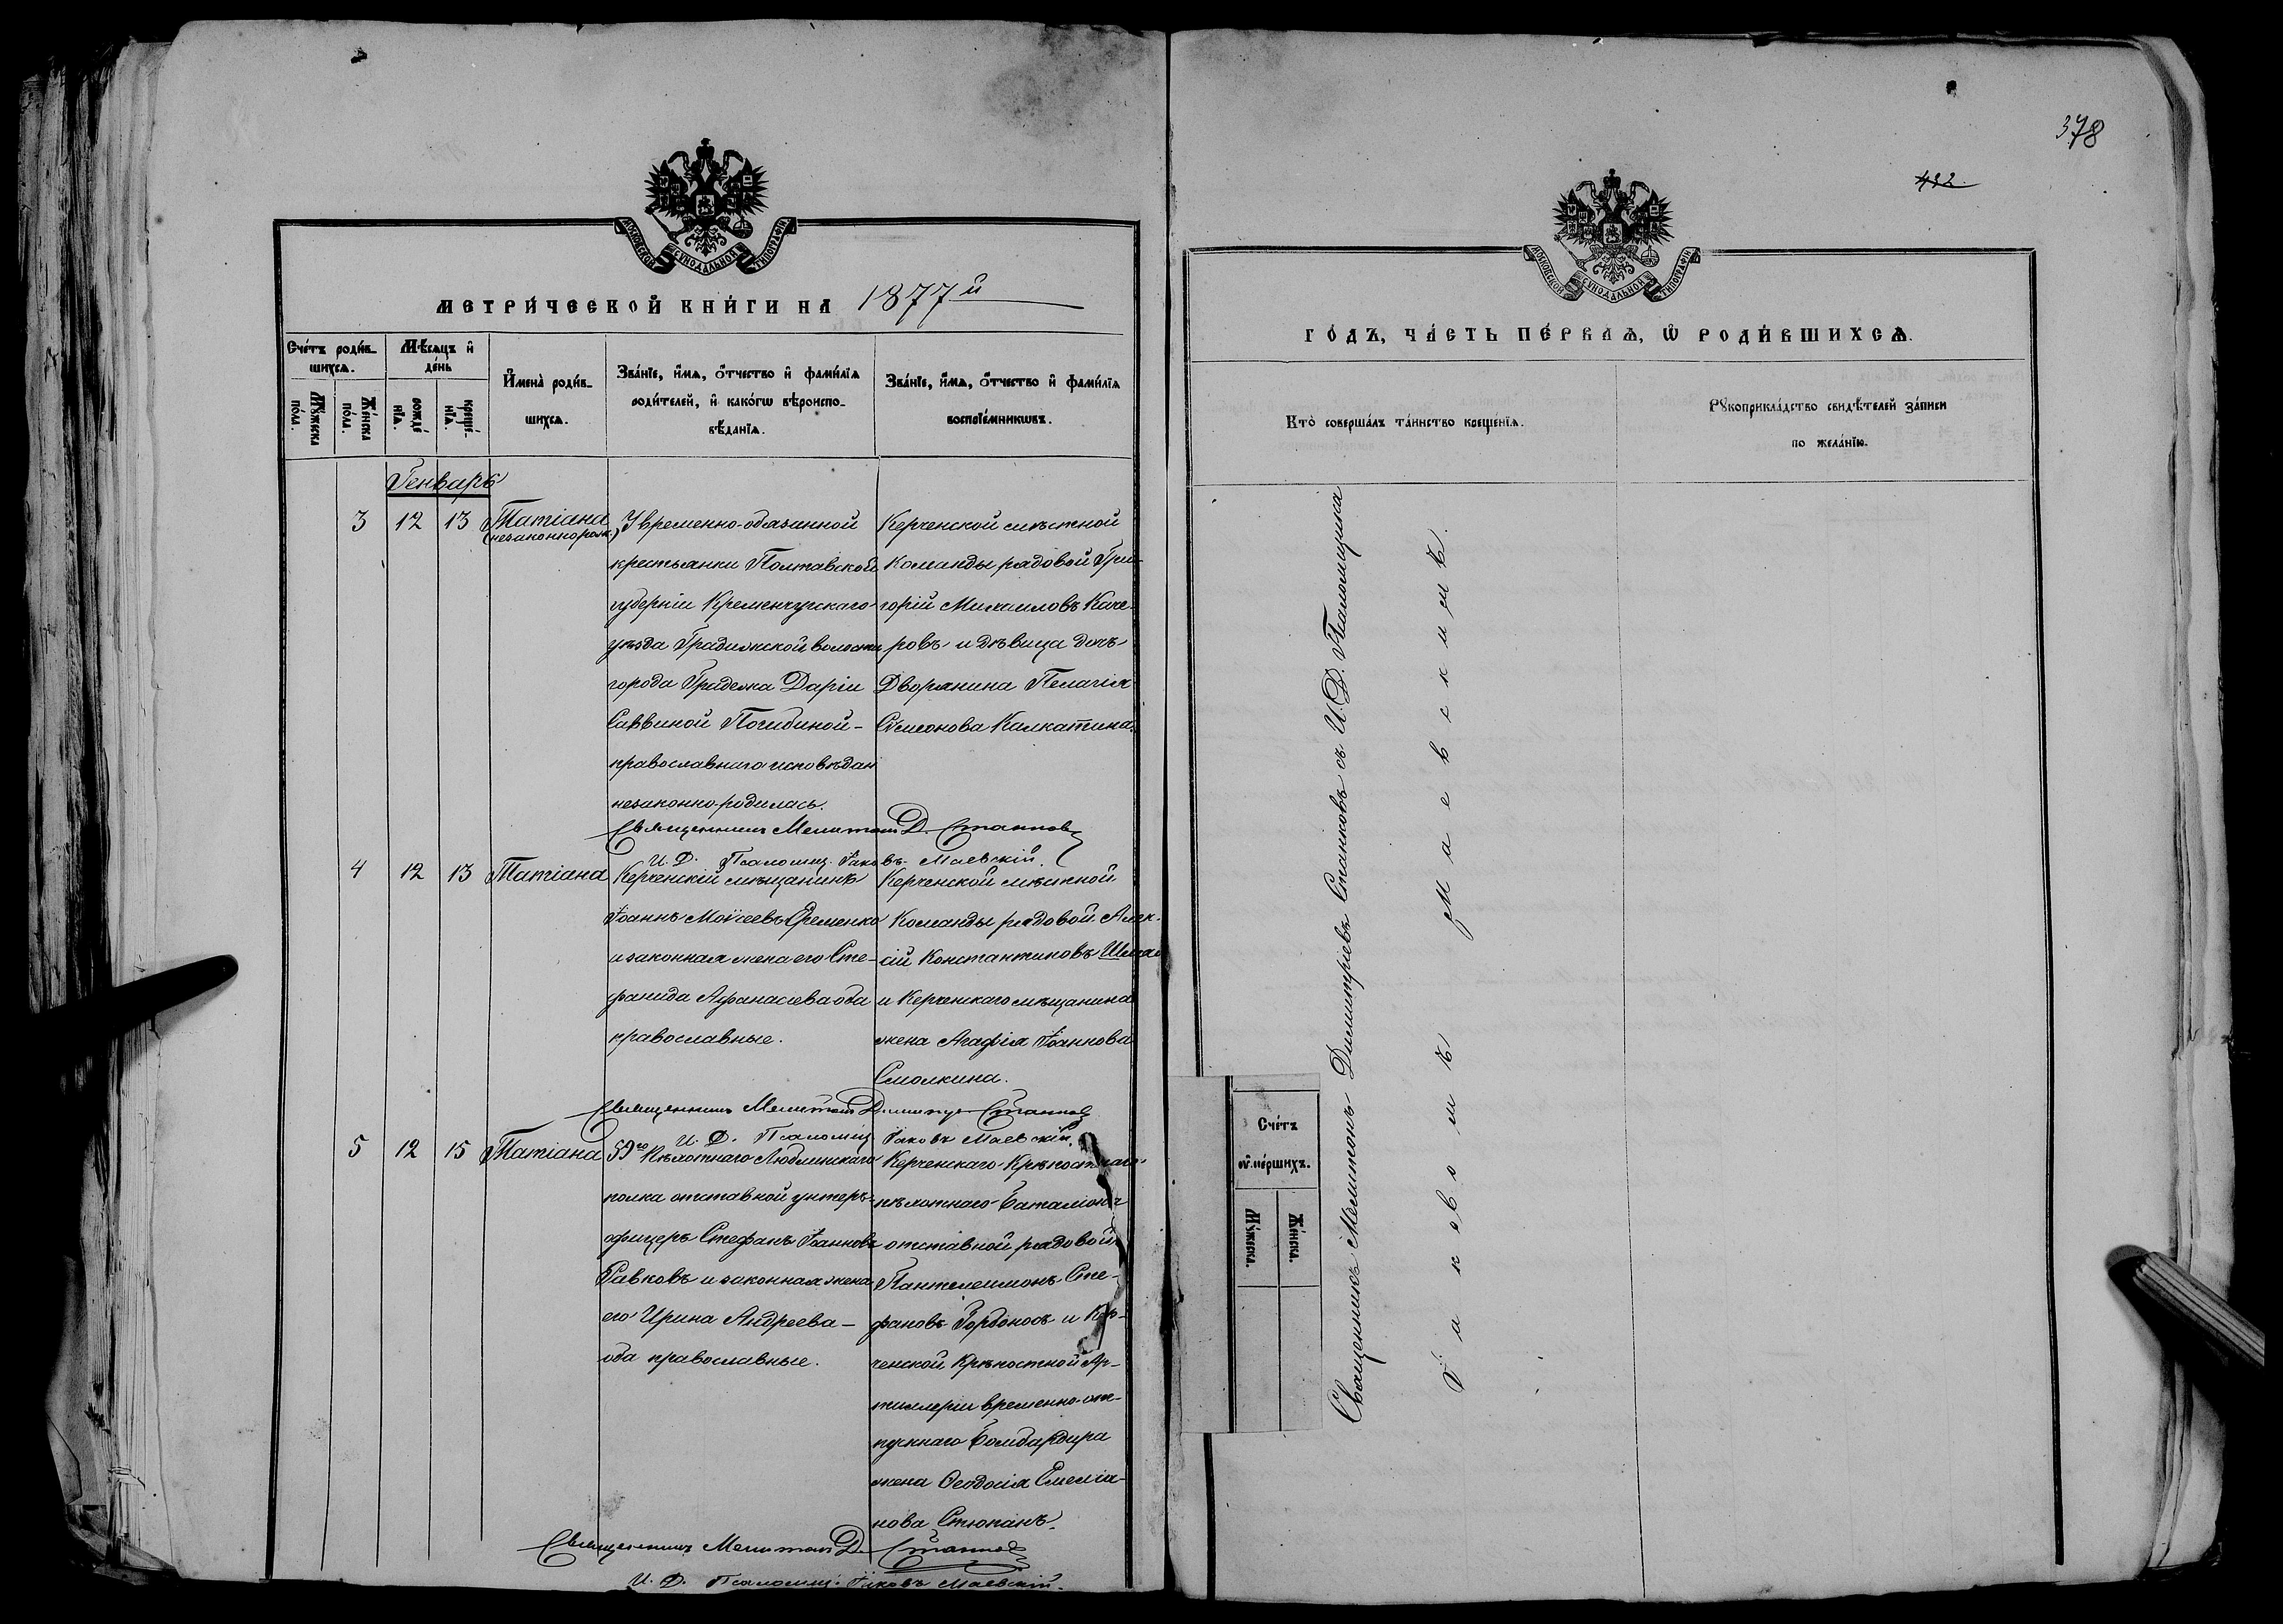 378
422
МОСКОВСКОЙ СѴНОДАЛЬНОЙ ТИПОГРАФІИ
МЕТРИ́ЧЕСКОЙ КНИ́ГИ НА 1877й
Сче́тъ роди́в-
шихсѧ.
Мꙋ́жеска по́ла.
Же́нска по́ла.
Мѣ́сѧцъ и де́нь
рожде́нїѧ.
креще́нїѧ.
И҆мена̀ роди́в-
шихсѧ.
Зва́нїе, и҆́мѧ, ѻ҆́тчество и҆ фами́лїѧ
роди́телей, и҆ како́гѡ вѣроиспо-
вѣ́данїѧ.
Зва́нїе, и҆́мѧ, ѻ҆́тчество и҆ фами́лїѧ
воспрїе́мникѡвъ.
Генварь
3 12 13 Татіана
(незаконнорож.)
У временно-обязанной
крестьянки Полтавской
губерніи Кременчугскаго
уѣзда Градижской волости
города Градежка Даріи
Саввиной Погибиной -
православнаго исповѣдан
незаконно-родилась.
Керченской мѣстной
Команды рядовой Гри-
горій Михаиловъ Каче-
ровъ и дѣвица дочь
Дворянина Пелагія
Сѵмеонова Калкатина.
Священникъ Мелитонъ Д. Станковъ
И. Д. Псаломщ. Іаковъ Маевскій.
4 12 13 Татіана
Керченскій мѣщанинъ
Іоаннъ Моѵсеевъ Еременко
и законная жена его Сте-
фанида Афанасіева оба
православные.
Керченской мѣстной
Команды рядовой Алек-
сій Константиновъ
и Керченскаго мѣщанина
жена Агафія Іоаннова
Смолкина.
Священникъ Мелитонъ Димитр. Станковъ
И. Д. Псаломщ. Іаковъ Маевскій.
5 12 15 Татіана
59го Пѣхотнаго Люблинскаго
полка отставной унтеръ-
офицеръ Стефанъ Іоанновъ
Равковъ и законная жена
его Ирина Андреева -
оба православные.
Керченскаго Крѣпостнаго
пѣхотнаго Баталіона
отставной рядовой
Пантелеимонъ Сте-
фановъ Горбоносъ и Кер-
ченской Крѣпостной Ар-
тиллеріи временно-от-
пускнаго Бомбардира
жена Ѳеодосія Емеліа-
нова Стюпанъ.
Священникъ Мелитонъ Д. Станковъ
И. Д. Псаломщ. Іаковъ Маевскій.
МОСКОВСКОЙ СѴНОДАЛЬНОЙ ТИПОГРАФІИ
ГО́ДЪ, ЧА́СТЬ ПЕ́РВАѦ, Ѽ РОДИ́ВШИХСѦ.
Кто̀ соверша́лъ та́инство креще́нїѧ.
Рꙋкоприкла́дство свидѣ́телей за́писи
по жела́нїю.
Священникъ Мелитонъ Димитріевъ Станковъ съ И. Д. Псаломщика
Іаковомъ Маевскимъ.
Сче́тъ
ᲂу҆ме́ршихъ.
Мꙋ́жеска.
Же́нска.